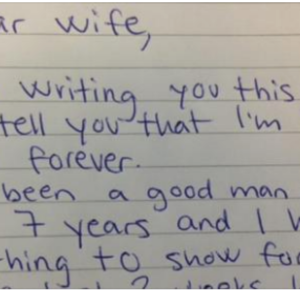 ar wife,
writing you this
tell you that I'm
forever.
been a good man
7 years and I
hing to show for
2 weeks